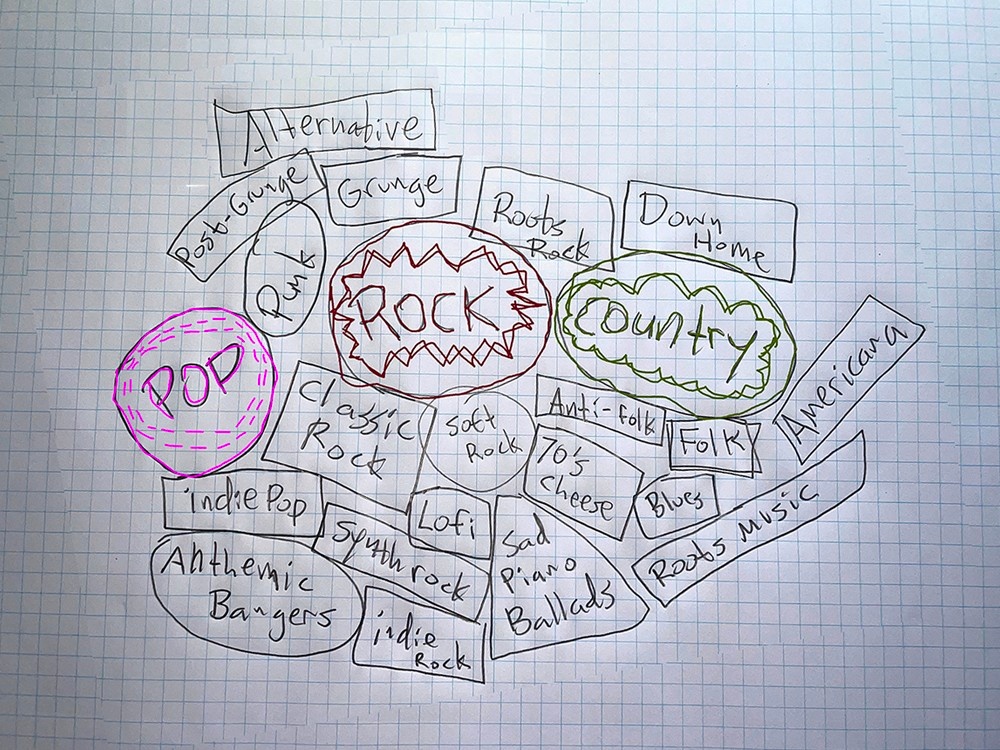 Alternative
Post-Grunge
Grunge
Roots
Rock
Down
Home
Punk
ROCK
Country
POP
Americana
Classic
Rock
Soft
Rock
Anti-Folk
Folk
70's
Cheese
Blues
Roots Music
indie Pop
Synth rock
Lofi
Sad
Piano
Ballads
Anthemic
Bangers
indie
Rock